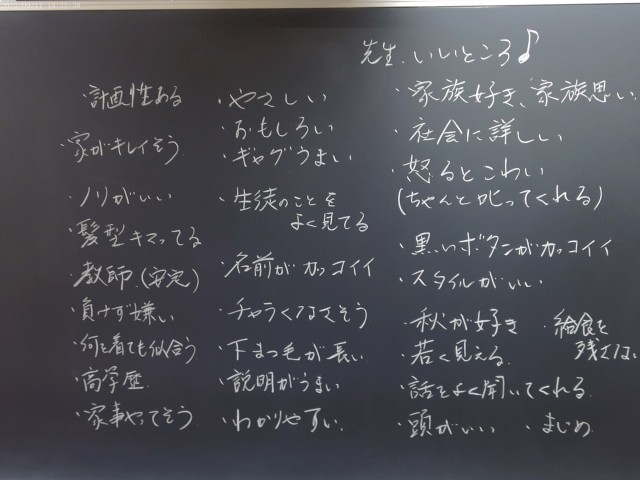 先生.いいところ♪
・計画性ある
・家がキレイそう
・ノリがいい
・髪型キマってる
・教師.(安定)
・負けず嫌い
・何を着ても似合う
・高学歴.
・家事やってそう
・やさしい
・おもしろい
・ギャグうまい
・生徒のことを
よく見てる
・名前がカッコイイ
・チャラくなさそう
・下まつ毛が長い
・説明がうまい
・わかりやすい.
・家族好き、家族思い.
・社会に詳しい
・怒るとこわい
(ちゃんと叱ってくれる)
・黒いボタンがカッコイイ
・スタイルがいい
・秋が好き
・給食を
残さない
・若く見える.
・話をよく聞いてくれる.
・頭がいい
・まじめ